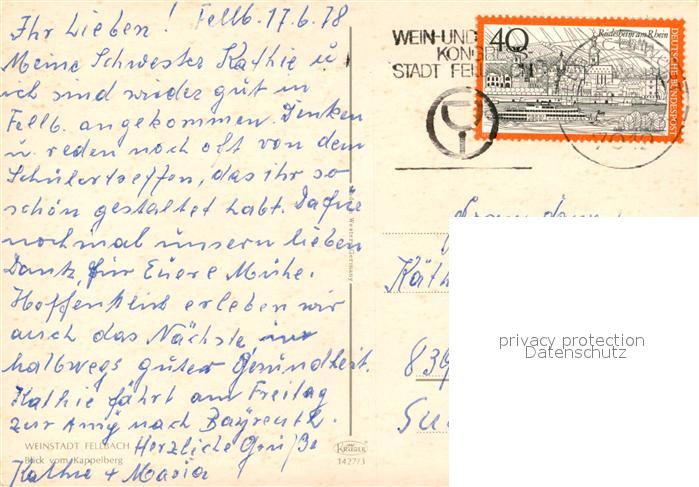 Ihr Lieben! Fellb. 17.6.78
Meine Schwester Kathie u.
ich sind wieder gut in
Fellb. angekommen. Denken
u. reden noch oft von dem
Schülertreffen, das ihr so
schön gestaltet habt. Dafür
nochmal unsern lieben
Dank, für Euere Mühe.
Hoffentlich erleben wir
auch das Nächste, in
halbwegs guter Gesundheit.
Kathie fährt am Freitag
zur nach Bayreuth.
Herzliche Grüße
Kathie + Maria
WEINSTADT FELLBACH
Blick vom Kappelberg
KRÜGER
1427/3
Western Germany
WEIN-UND
KONGRESS
STADT FELLBACH
40
Rüdesheim am Rhein
DEUTSCHE BUNDESPOST
Käth
839
privacy protection
Datenschutz